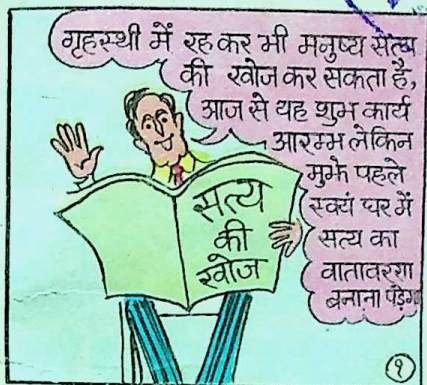 गृहस्थी में रह कर भी मनुष्य सत्य
की खोज कर सकता है,
आज से यह शुभ कार्य
आरम्भ लेकिन
मुझे पहले
स्वयं घर में
सत्य का
वातावरण
बनाना पड़ेगा
सत्य
की
खोज
१